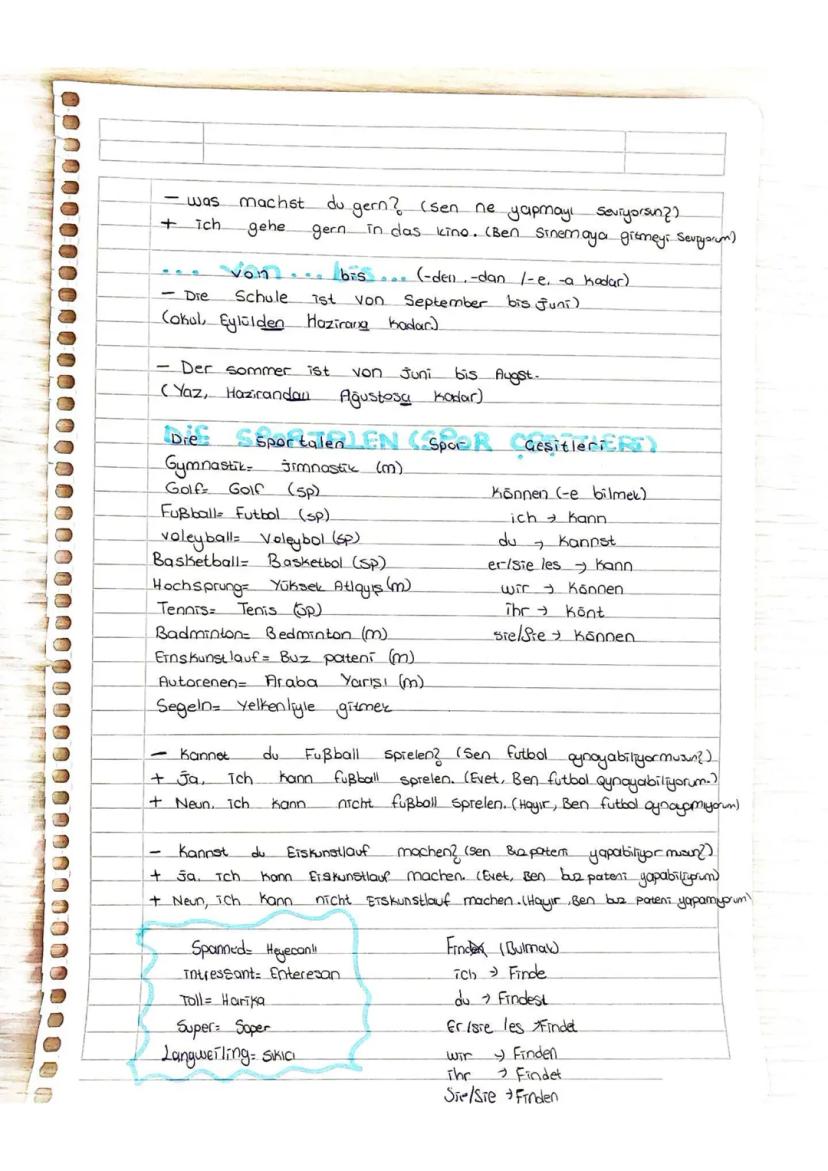 - was machst du gern? (sen ne yapmayı seviyorsun?)
+ ich gehe gern in das kino. (Ben sinemaya gitmeyi seviyorum)
... von ... bis ... (-den, -dan /-e, -a kadar)
- Die Schule ist von September bis Juni)
(okul, Eylülden Hazirana kadar)
- Der sommer ist von Juni bis Augst.
(Yaz, Hazirandan Ağustosa kadar)
Die Sportalen (Spor Çeşitleri)
Gymnastik= Jimnastik (m)
Golf= Golf (sp)
können (-e bilmek)
Fußball= Futbol (sp)
ich → kann
voleyball= Voleybol (sp)
du → kannst
Basketball= Basketbol (sp)
er/sie les → kann
Hochsprung= Yüksek Atlayış (m)
wir → können
Tennis= Tenis (sp)
ihr → könt
Badminton= Bedminton (m)
sie/Sie → können
Einskunstlauf= Buz pateni (m)
Autorenen= Araba Yarışı (m)
Segeln= Yelkenliyle gitmek
- Kannet du Fußball spielen? (Sen futbol oynayabiliyormusun?)
+ Ja, Ich kann fußball spielen. (Evet, Ben futbol oynayabiliyorum.)
+ Neun, ich kann nicht fußball spielen. (Hayır, Ben futbol oynapmıyorum)
- Kannst du Eiskunstlauf machen? (Sen Buz pateni yapabiliyor musun?)
+ Ja, ich kann Eiskunstlauf machen. (Evet, Ben buz pateni yapabiliyorum)
+ Neun, ich kann nicht Eiskunstlauf machen. (Hayır, Ben buz pateni yapamıyorum)
Spanned= Heyecanlı
Finden (Bulmak)
Intressant= Enteresan
ich → Finde
Toll= Harika
du → Findest
Super= Soper
Er/sie les → Findet
Langweiling= Sıkıcı
wir → Finden
ihr → Findet
Sie/Sie → Finden